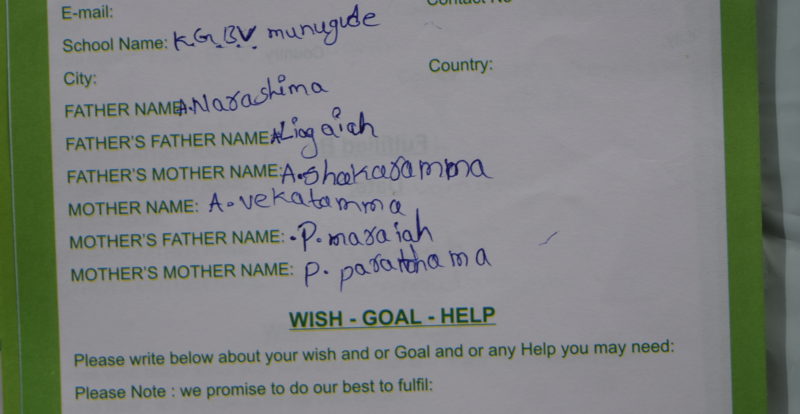 E-mail:
School Name: K.G.B.V. munugude
City: Country:
FATHER NAME: A. Narashima
FATHER'S FATHER NAME: A Liogaiah
FATHER'S MOTHER NAME: A. shakaramma
MOTHER NAME: A. vekatamma
MOTHER'S FATHER NAME: . P. maraiah
MOTHER'S MOTHER NAME: P. parathama
WISH - GOAL - HELP
Please write below about your wish and or Goal and or any Help you may need:
Please Note : we promise to do our best to fulfil: